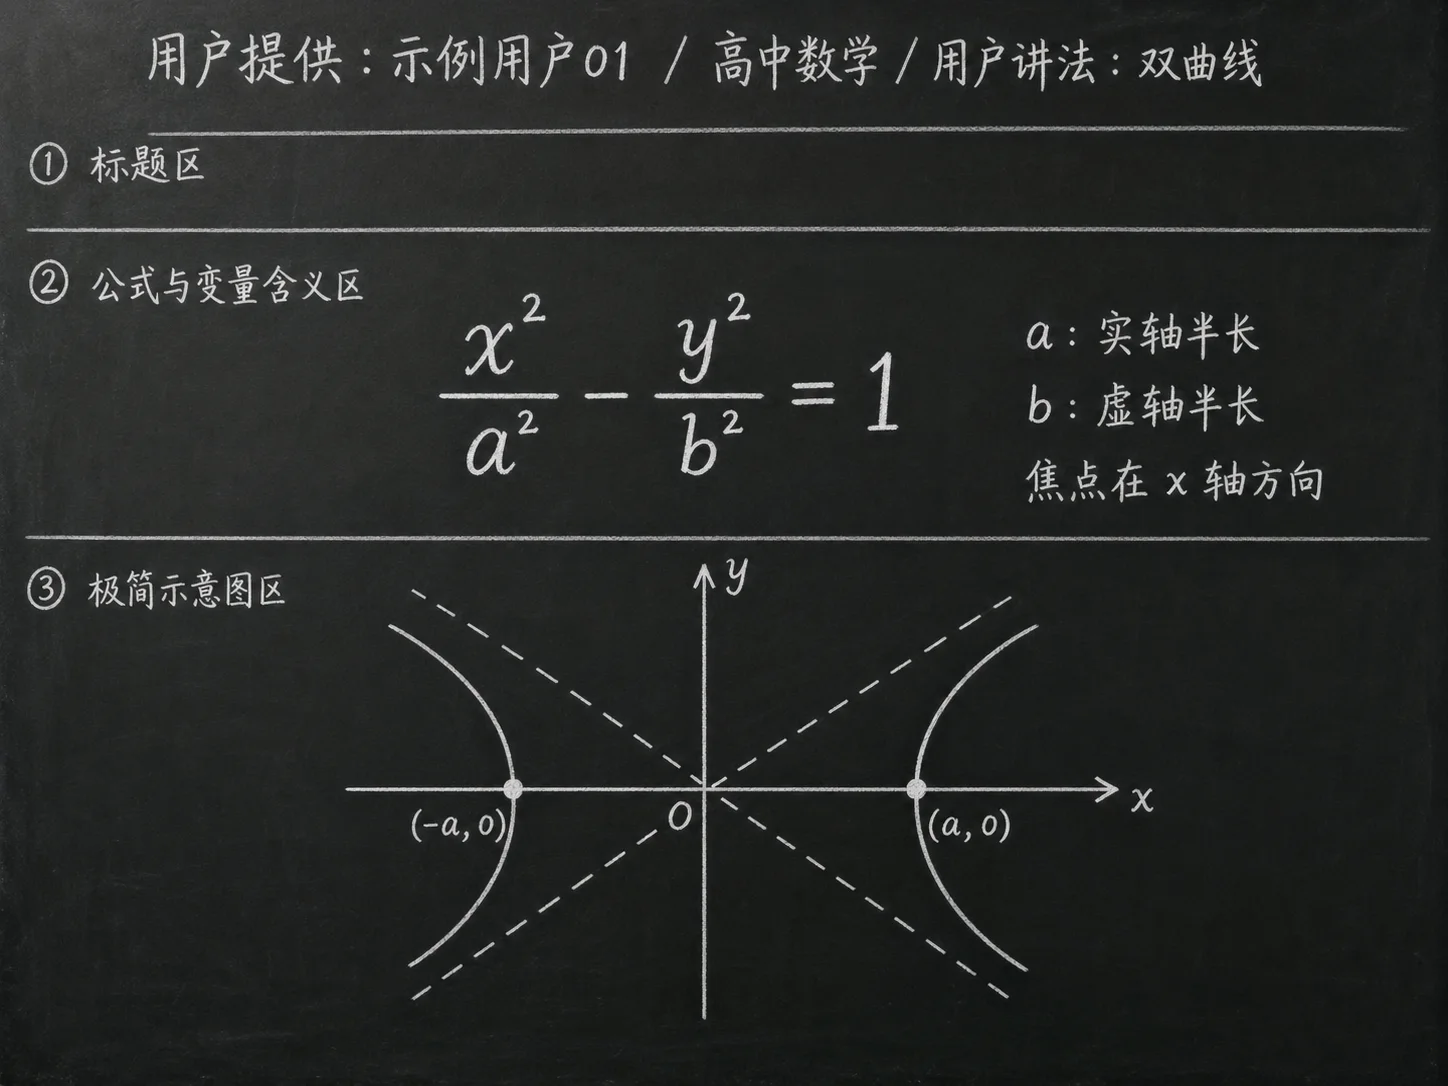 用户提供：示例用户01 / 高中数学 / 用户讲法：双曲线
① 标题区
② 公式与变量含义区
x²/a² − y²/b² = 1
a：实轴半长
b：虚轴半长
焦点在 x 轴方向
③ 极简示意图区
y
x
O
(-a, 0)
(a, 0)